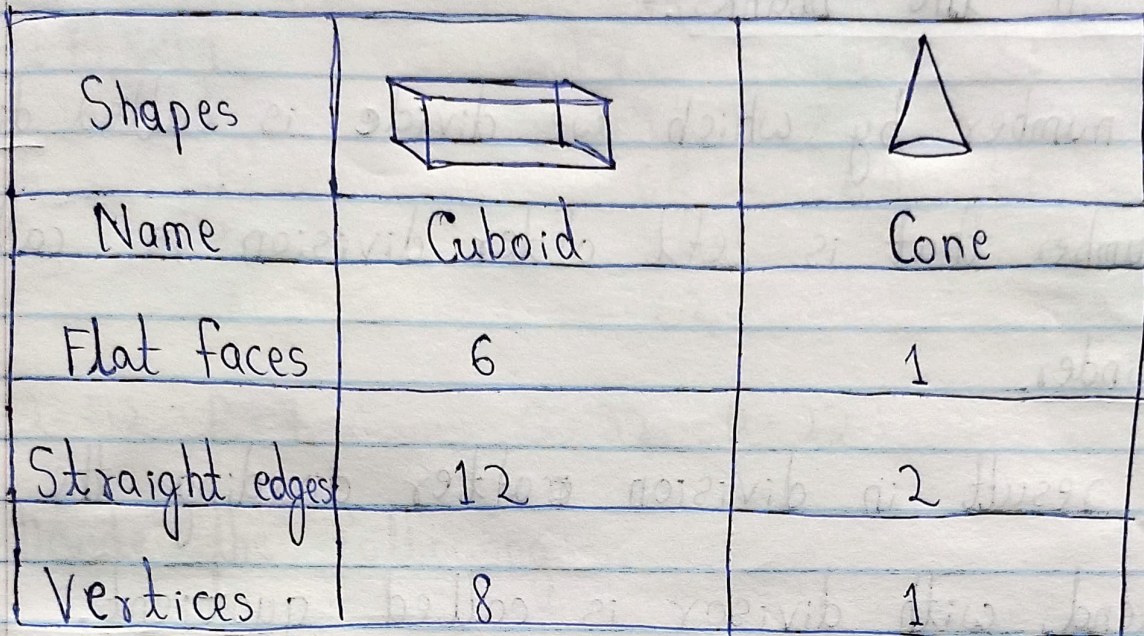 Shapes
Name Cuboid Cone
Flat faces 6 1
Straight edges 12 2
Vertices 8 1